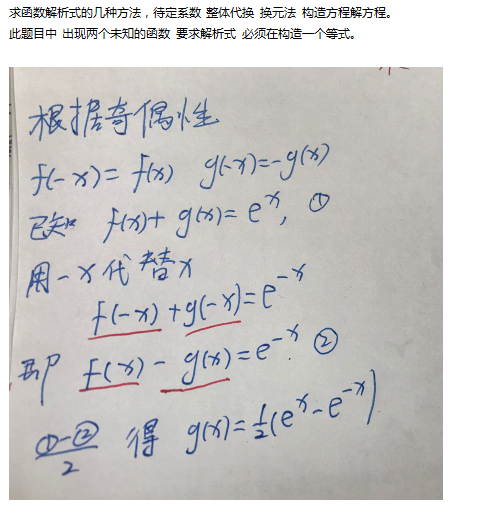 求函数解析式的几种方法，待定系数 整体代换 换元法 构造方程解方程。
此题目中 出现两个未知的函数 要求解析式 必须在构造一个等式。
根据奇偶性
f(-x)=f(x) g(-x)=-g(x)
已知 f(x)+g(x)=eˣ, ①
用-x代替x
f(-x)+g(-x)=e⁻ˣ
即 f(x)-g(x)=e⁻ˣ. ②
(①-②)/2 得 g(x)=½(eˣ-e⁻ˣ)